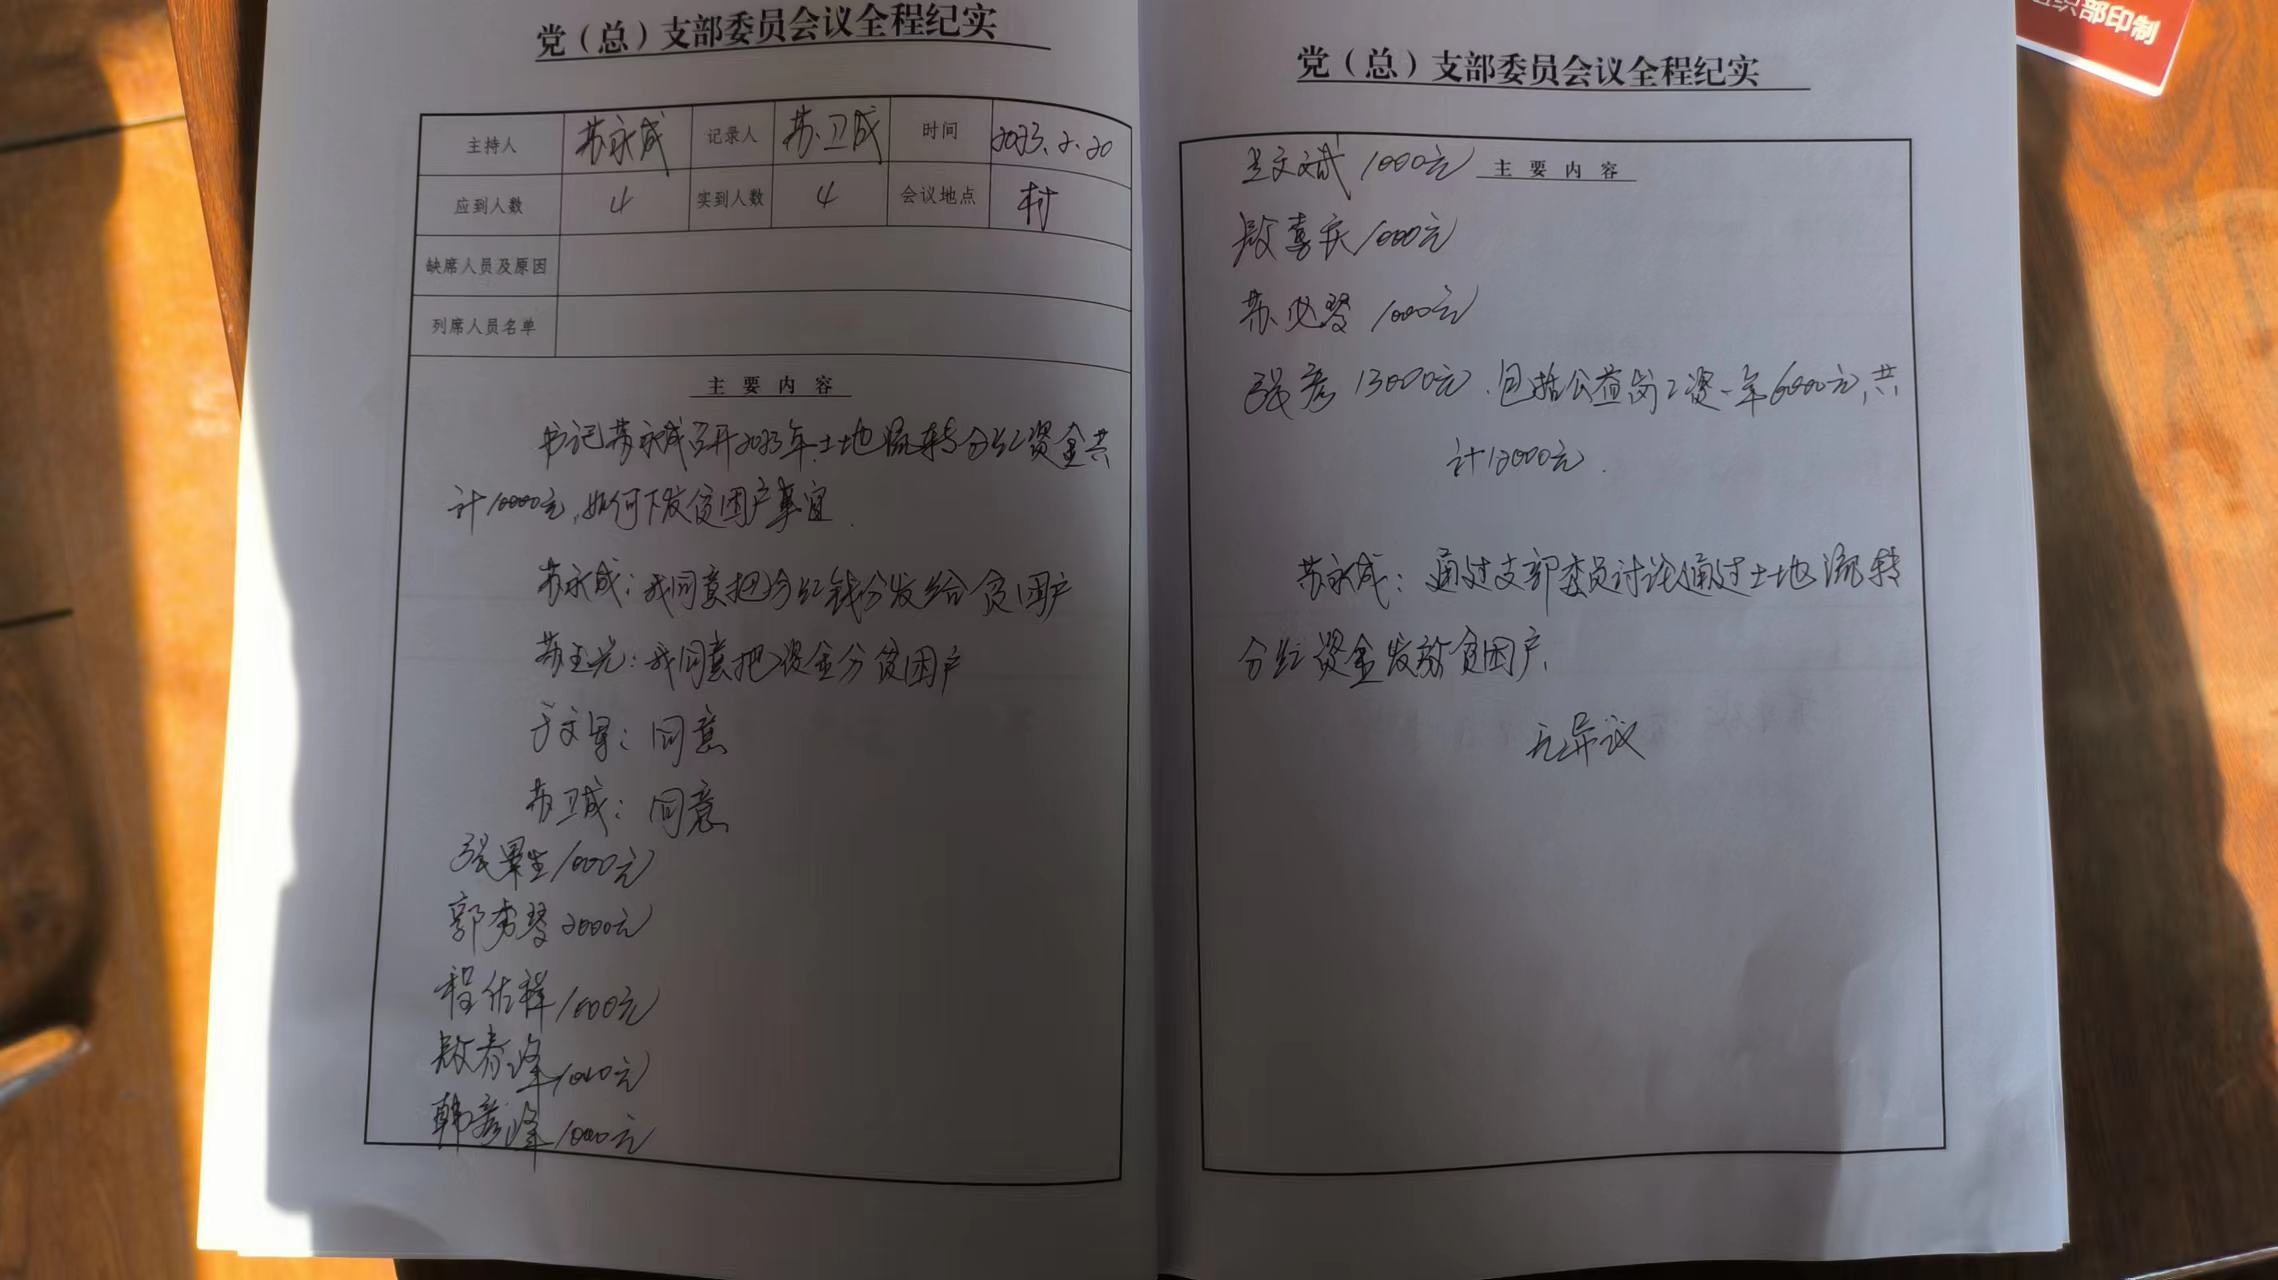 党（总）支部委员会议全程纪实
主持人 苏永成 记录人 苏卫成 时间 2023.2.20
应到人数 4 实到人数 4 会议地点 村
缺席人员及原因
列席人员名单
主要内容
书记苏永成召开2023年土地流转分红资金共
计10000元,如何下发贫困户事宜.
苏永成：我同意把分红钱分发给贫困户
苏玉光：我同意把资金分贫困户
于文军：同意
苏卫成：同意
张果生1000元
郭秀琴2000元
程佑祥1000元
殷春峰1000元
韩彦峰1000元
组织部印制
党（总）支部委员会议全程纪实
主要内容
王文斌 1000元
殷喜庆1000元
苏必琴 1000元
张彦 13000元.包括公益岗工资一年6000元,共
计12000元.
苏永成：通过支部委员讨论通过土地流转
分红资金发放贫困户.
无异议